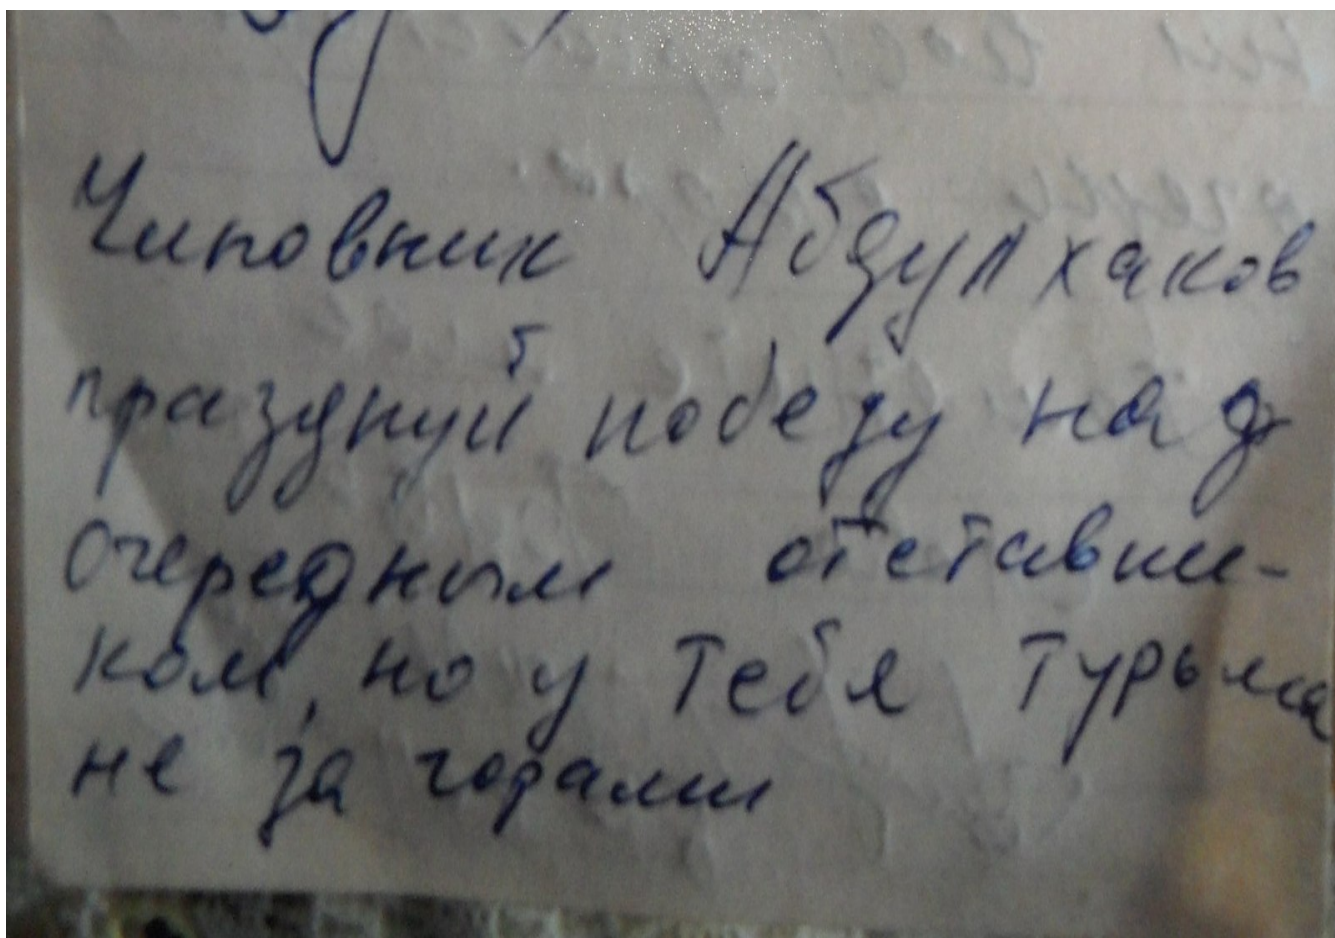 Чиновник Абдулхаков
празднуй победу над
очередным отставни-
ком, но у тебя турьма
не за горами